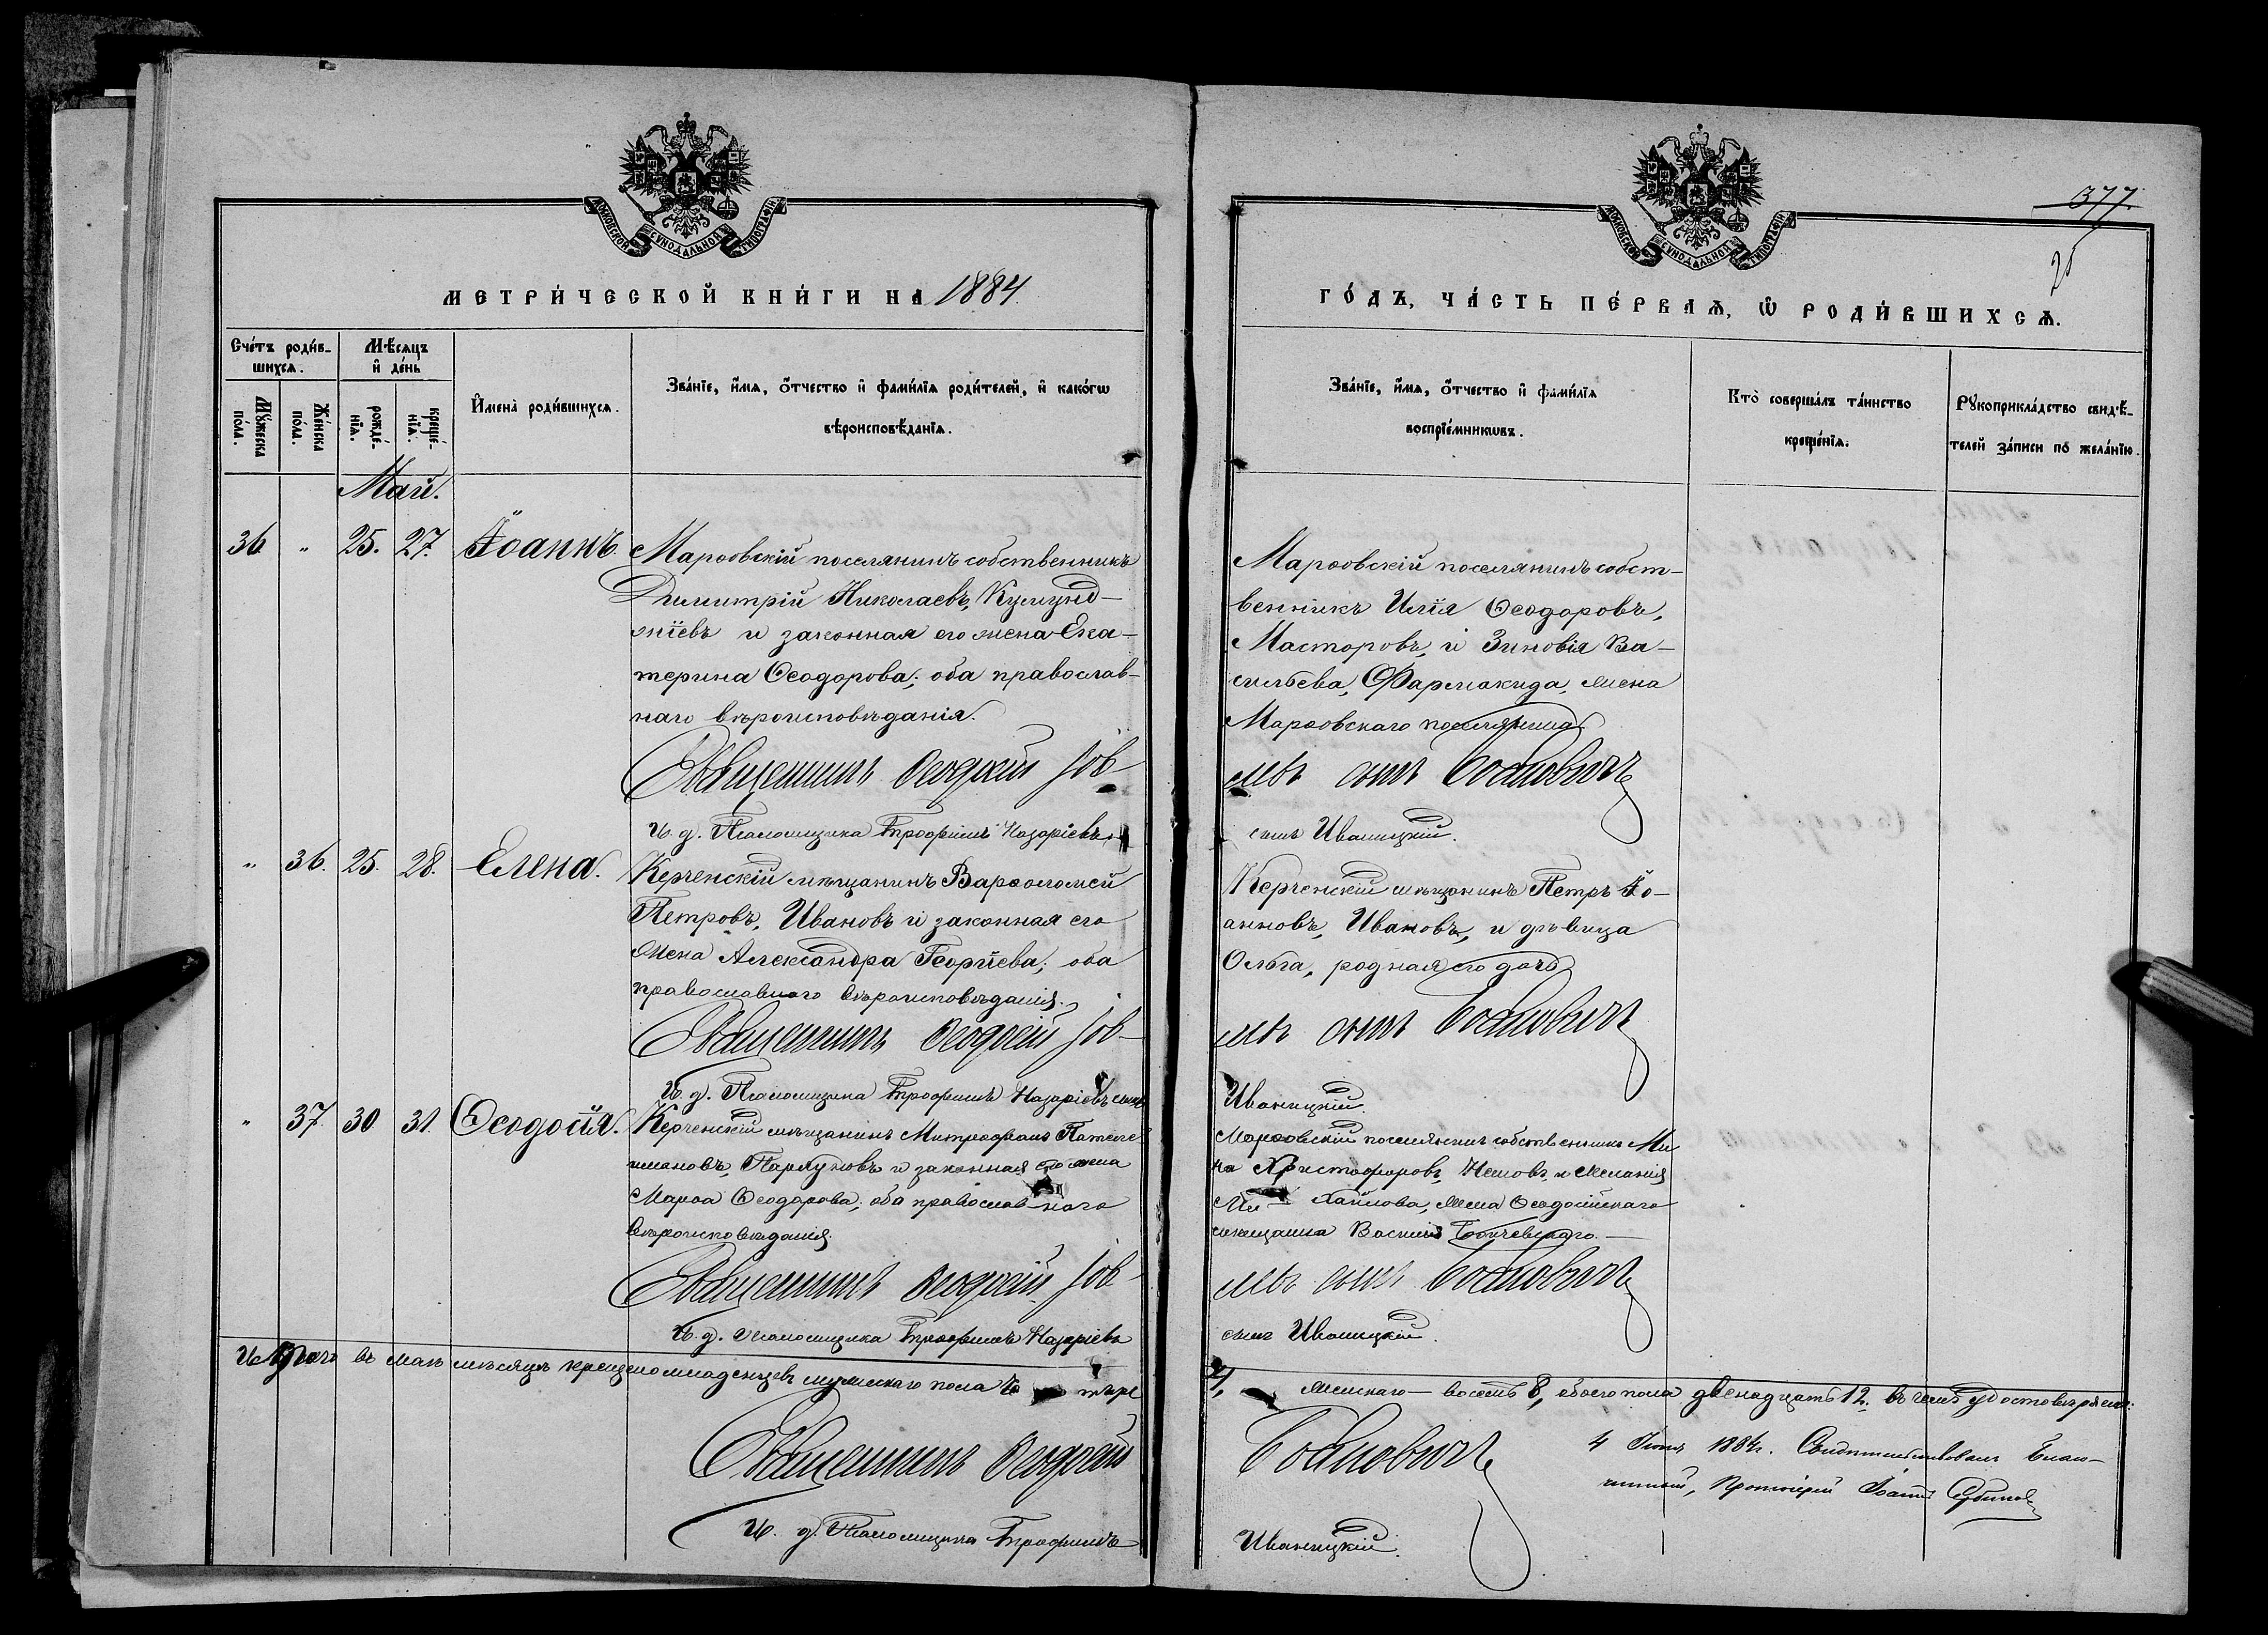 МОСКОВСКОЙ СѴНОДАЛЬНОЙ ТИПОГРАФІИ
МЕТРИ́ЧЕСКОЙ КНИ́ГИ НА 1884.
Сче́тъ роди́в-
шихсѧ.
Мѣ́сѧцъ
и҆ де́нь
Мꙋ́жеска
по́ла.
Же́нска
по́ла.
рожде́-
нїѧ.
креще́-
нїѧ.
И҆мена̀ роди́вшихсѧ.
Зва́нїе, и҆́мѧ, ѻ҆́тчество и҆ фами́лїѧ роди́телей, и҆ како́гѡ
вѣроисповѣ́данїѧ.
Май.
36 " 25. 27. Іоаннъ.
Марѳовскій поселянинъ собственникъ
Димитрій Николаевъ, Кумунд-
жіевъ и законная его жена Ека-
терина Ѳеодорова; оба православ-
наго вѣроисповѣданія.
Священникъ Ѳеодосій Іов-
И. д. Псаломщика Трофимъ Назаріевъ
" 36. 25. 28. Елена.
Керченскій мѣщанинъ Варѳоломей
Петровъ, Ивановъ и законная его
жена Александра Георгіева; оба
православнаго вѣроисповѣданія.
Священникъ Ѳеодосій Іов-
И. д. Псаломщика Трофимъ Назаріевъ сынъ
" 37. 30 31. Ѳеодосія.
Керченскій мѣщанинъ Митрофанъ
и законная его жена
Марѳа Ѳеодорова; оба православнаго
вѣроисповѣданія.
Священникъ Ѳеодосій Іов-
И. д. Псаломщика Трофимъ Назаріевъ
Итого въ маѣ мѣсяцѣ крещено младенцевъ мужескаго пола четыре
Священникъ Ѳеодосій
И. д. Псаломщика Трофимъ
МОСКОВСКОЙ СѴНОДАЛЬНОЙ ТИПОГРАФІИ
377.
25
ГО́ДЪ, ЧА́СТЬ ПЕ́РВАѦ, Ѡ҆ РОДИ́ВШИХСѦ.
Зва́нїе, и҆́мѧ, ѻ҆́тчество и҆ фами́лїѧ
воспрїе́мникѡвъ.
Кто̀ соверша́лъ та́инство
креще́нїѧ.
Рꙋкоприкла́дство свидѣ́-
телей за́писи по жела́нїю.
Марѳовскій поселянинъ собст-
венникъ Илія Ѳеодоровъ,
Масторовъ, и Зиновія Ва-
сильева, Фармакида, жена
Марѳовскаго поселянина
левъ сынъ Бошновичъ
сынъ Иваницкій.
Керченскій мѣщанинъ Петръ Іо-
анновъ, Ивановъ, и дѣвица
Ольга, родная его дочь
левъ сынъ Бошновичъ
Иваницкій.
Марѳовскій поселянинъ собственникъ Ми-
на Христофоровъ, и Мелания
Ми- хайлова, жена Ѳеодосійскаго
мѣщанина Василія
левъ сынъ Бошновичъ
сынъ Иваницкій.
4, женскаго — восемь 8, обоего пола двенадцать 12. въ чемъ удостовѣряемъ:
Бошновичъ
4 Іюня 1884г. Свидѣтельствовалъ Благо-
чинный, Протоіерей Іоаннъ
Иваницкій.